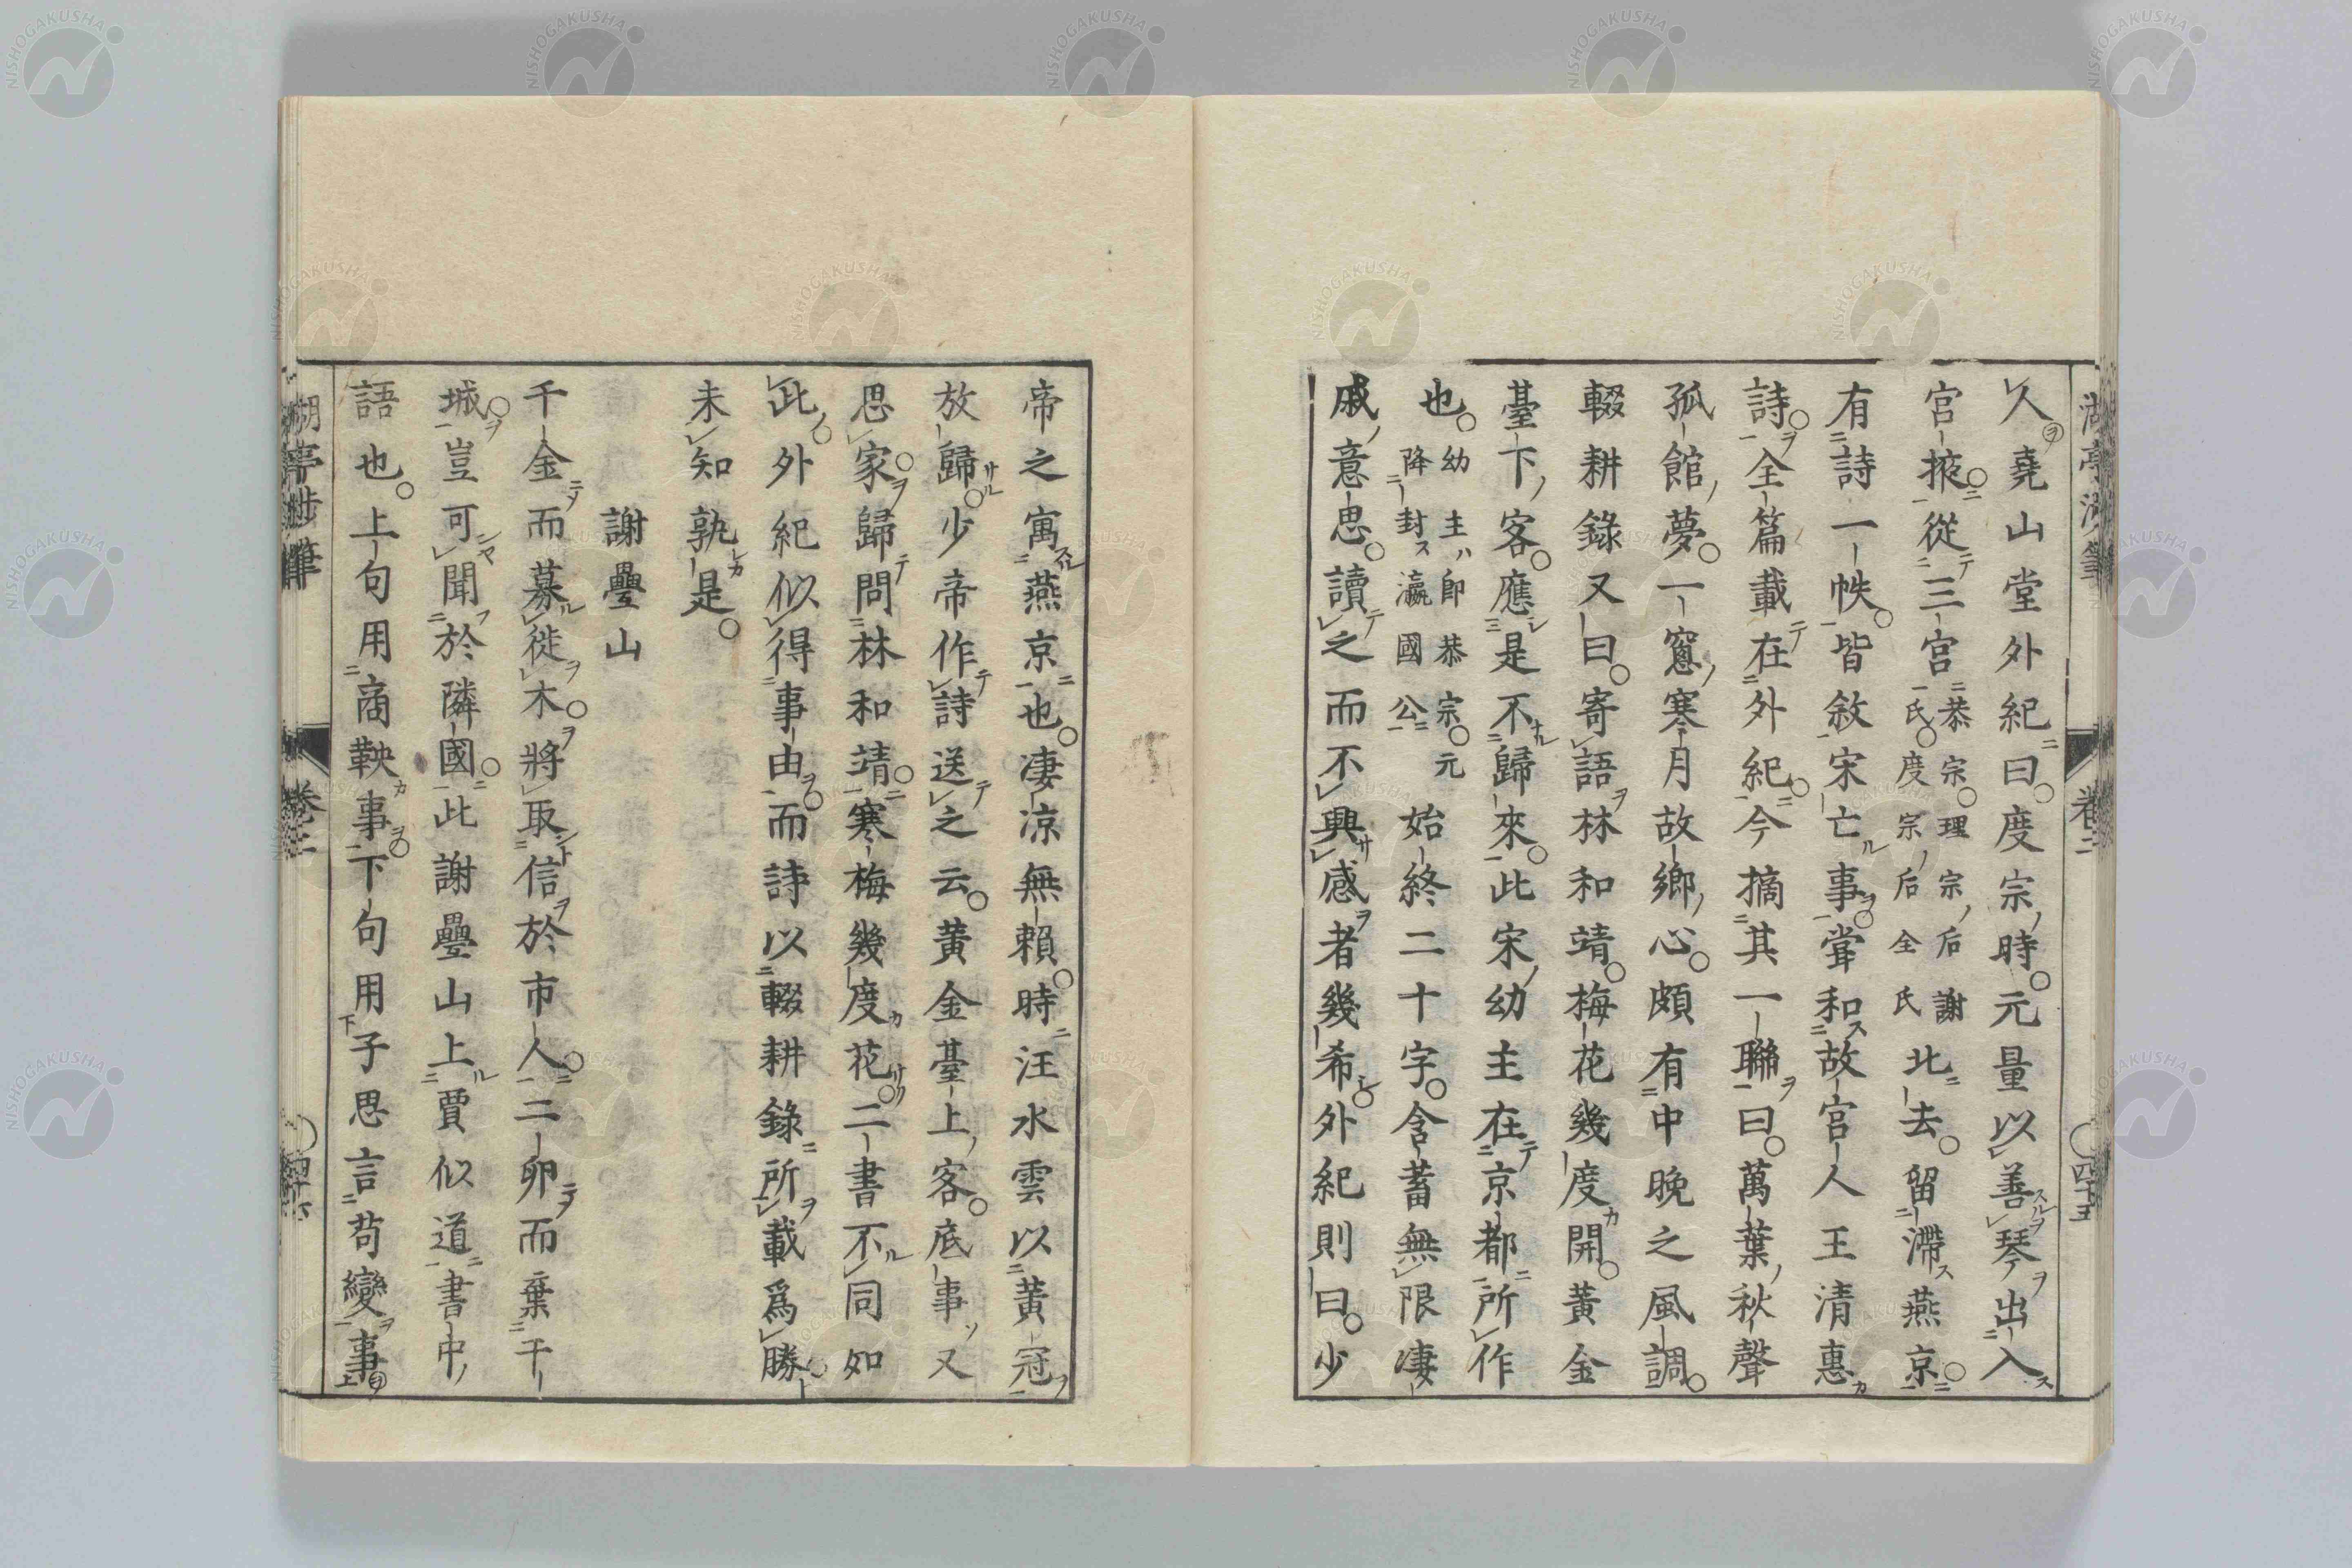 人堯山堂外紀曰度宗時元量以善琴出入
宮掖從三宮恭宗理宗后謝氏度宗后全氏北去留滯燕京
有詩一帙皆敘宋亡事甞和故宮人王清惠
詩全篇載在外紀今摘其一聯曰萬葉秋聲
孤館夢一窻寒月故鄉心頗有中晚之風調
輟耕錄又曰寄語林和靖梅花幾度開黃金
臺下客應是不歸來此宋幼主在京都所作
也幼主ハ卽恭宗元降封瀛國公始終二十字含蓄無限凄
戚意思讀之而不興感者幾希外紀則曰少
卷二
四十五
帝之寓燕京也凄凉無賴時汪水雲以黃冠
放歸少帝作詩送之云黃金臺上客底事又
思家歸問林和靖寒梅幾度花二書不同如
此外紀似得事由而詩以輟耕錄所載爲勝
未知孰是
謝疊山
千金而募徙木將取信於市人二卵而棄干
城豈可聞於隣國此謝疊山上賈似道書中
語也上句用商鞅事下句用子思言苟變事
湖亭涉筆
卷二
四十六
NISHOGAKUSHA